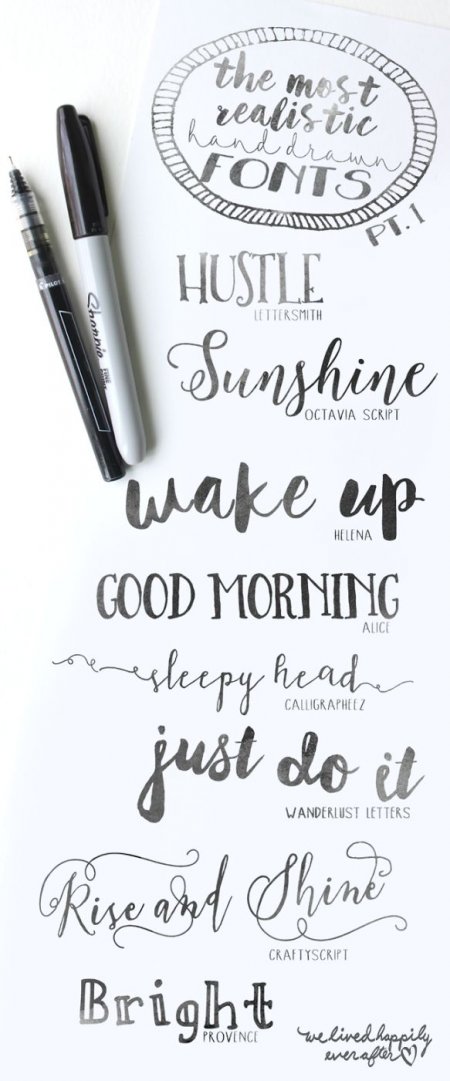 the most
realistic
hand drawn
FONTS
PT. 1
PILOT
Sharpie
FINE
HUSTLE
LETTERSMITH
Sunshine
OCTAVIA SCRIPT
wake up
HELENA
GOOD MORNING
ALICE
sleepy head
CALLIGRAPHEEZ
just do it
WANDERLUST LETTERS
Rise and Shine
CRAFTYSCRIPT
Bright
PROVENCE
we lived happily
ever after